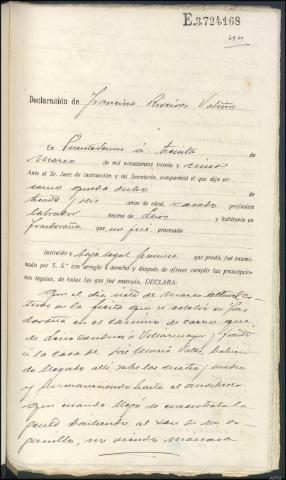 E.3724168
44
Declaración de Francisco
En Puentedeume á treinta de
Marzo de mil novecientos treinta y cinco
Ante el Sr. Juez de instrucción y mi Secretario, compareció el que dijo ser
como queda dicho de
treinta y seis años de edad, casado profesión
labrador vecino de y habitante en
no fué procesado
Instruído y bajo legal promesa que prestó, fué exami-
nado por S. S.ª con arreglo á derecho y después de ofrecer cumplir las prescripcio-
nes legales, de todas las que fué enterado, DECLARA:
Que el día siete de Marzo
en la fiesta que se celebró en
en el camino de carro que
de conduce a Villarmayor, frente
á la casa de José María
llegado allí sobre las cuatro y media
y permaneciendo hasta el anochecer
que cuando llegó se encontraba la
gente bailando al son de un or-
ganillo, no viendo máscara